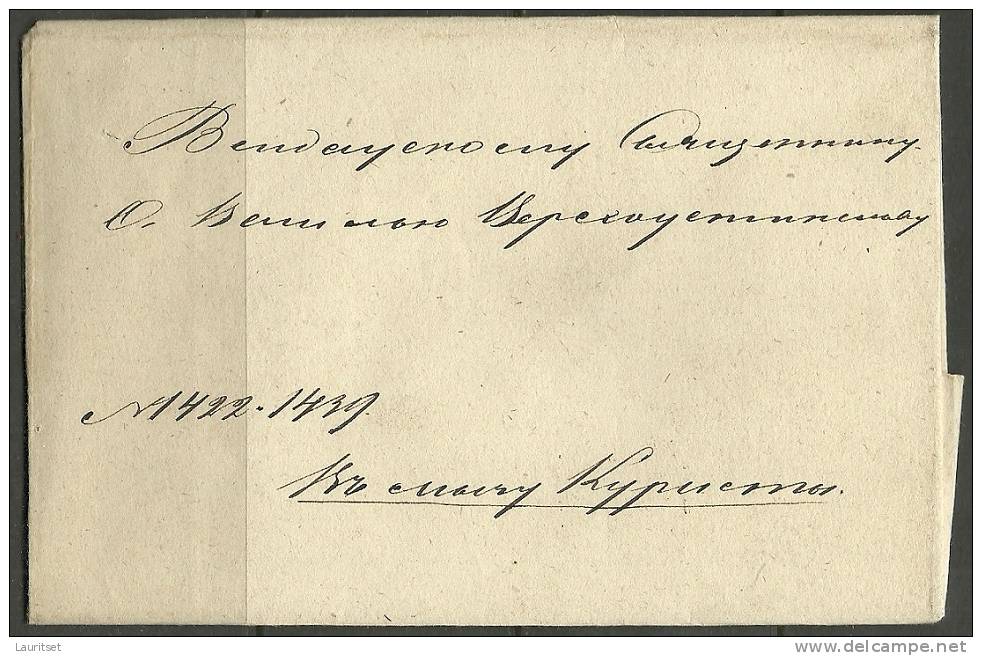 Вендаускому Священнику
О. Василью Верхоустинскому
№ 1422-1439.
Въ мызу Куристы.
Lauritset
delcampe.net